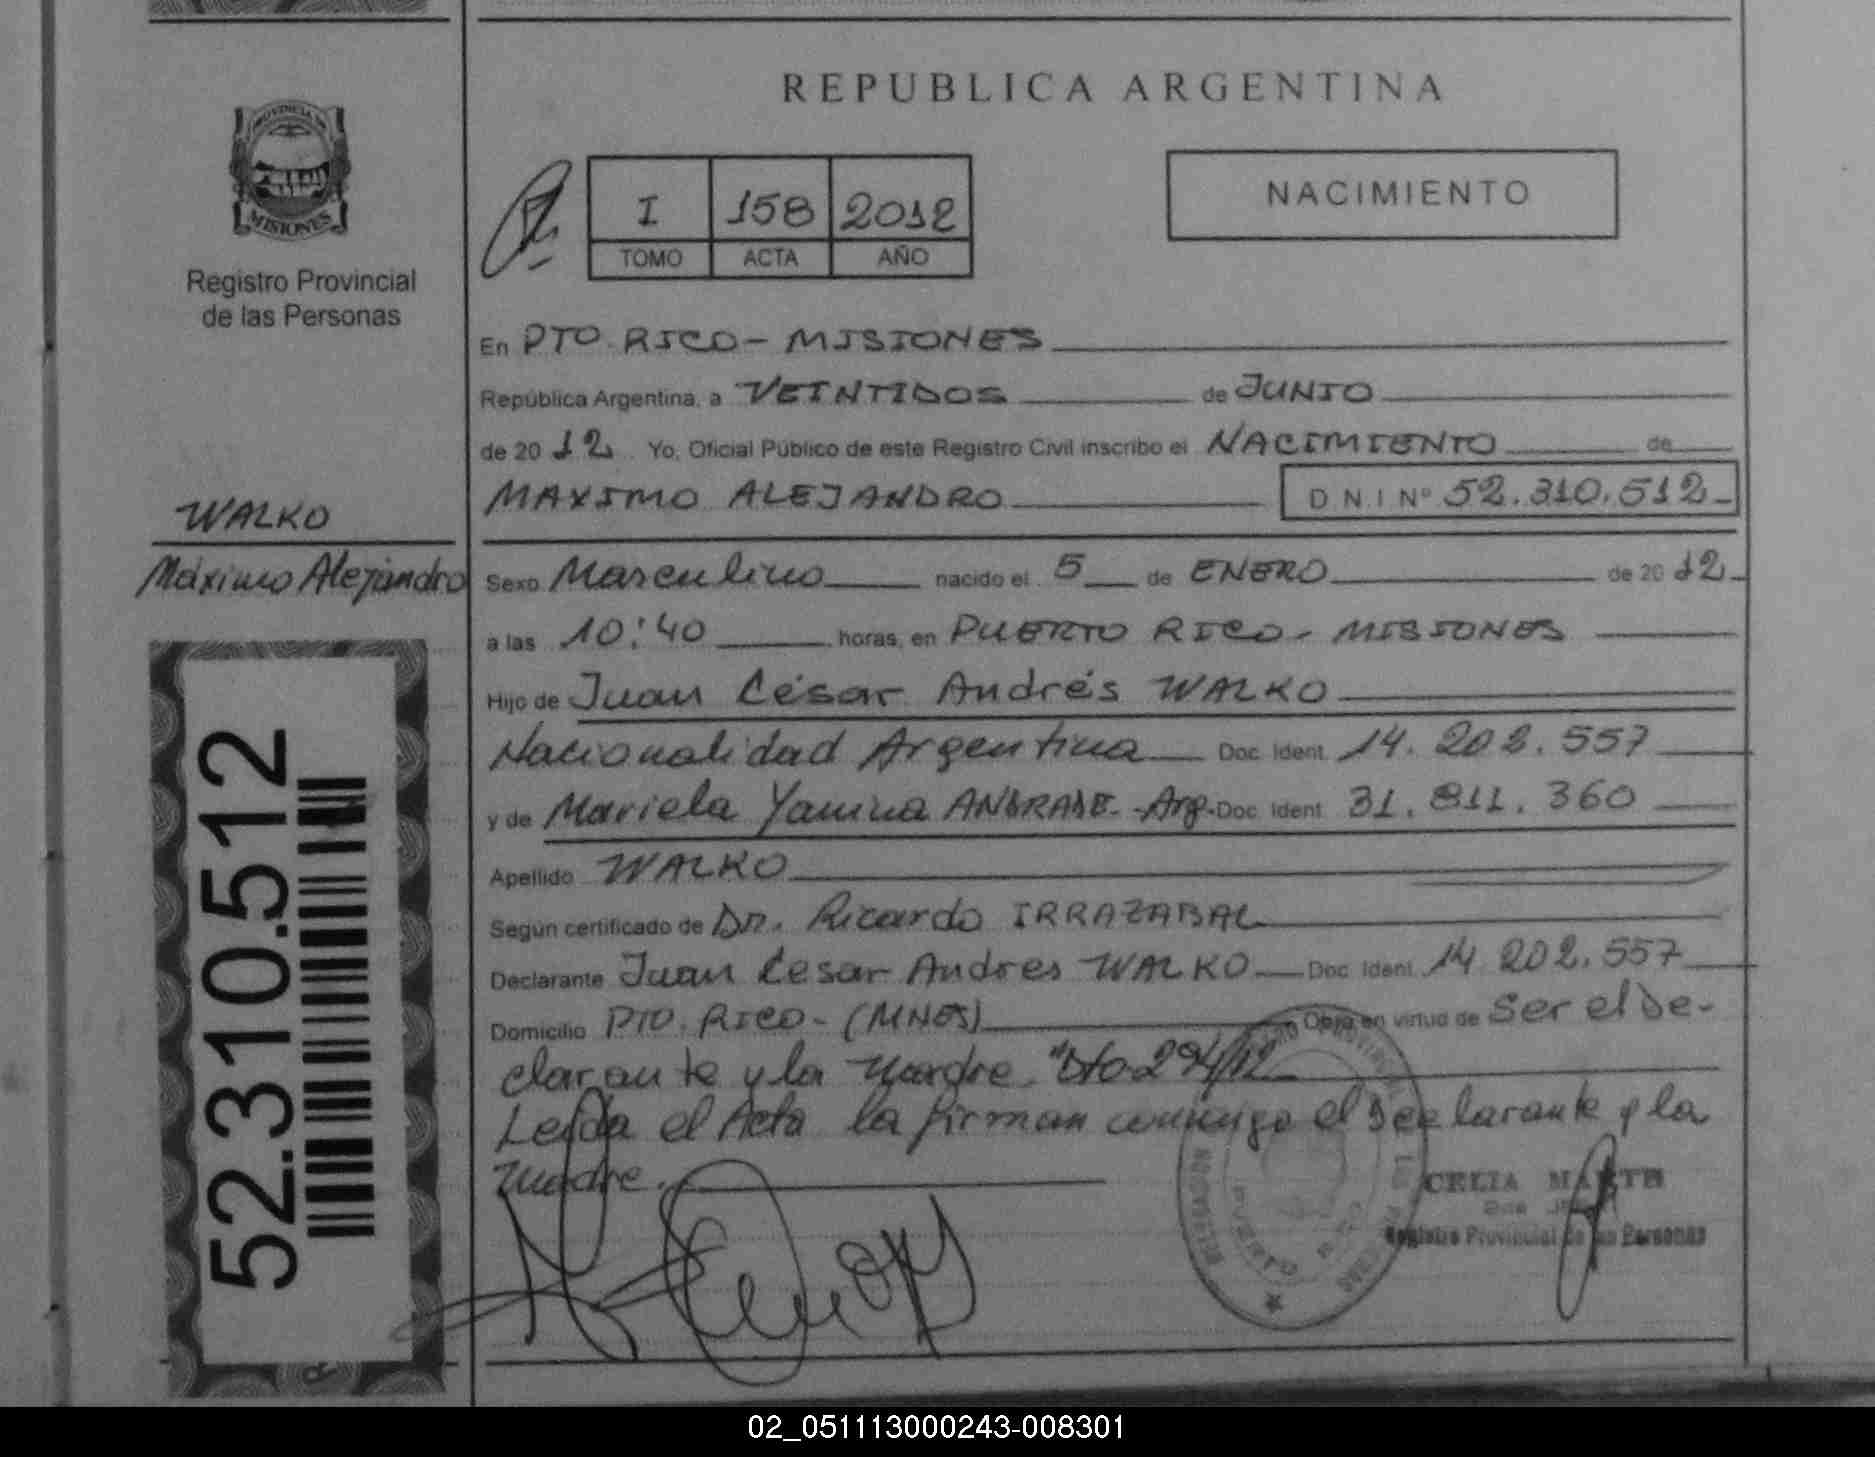 REPUBLICA ARGENTINA
PROVINCIA DE
MISIONES
Registro Provincial
de las Personas
I 158 2012
TOMO ACTA AÑO
NACIMIENTO
En PTO. RICO - MISIONES
República Argentina, a VEINTIDOS de JUNIO
de 2012 Yo, Oficial Público de este Registro Civil inscribo el NACIMIENTO de
MAXIMO ALEJANDRO D.N.I Nº 52.310.512
WALKO
Máximo Alejandro
Sexo Masculino nacido el 5 de ENERO de 2012
a las 10:40 horas, en PUERTO RICO - MISIONES
Hijo de Juan César Andrés WALKO
Nacionalidad Argentina Doc. Ident. 14.202.557
y de Mariela Yanina ANDRADE - Arg. Doc. Ident. 31.811.360
Apellido WALKO
Según certificado de Dr. Ricardo IRRAZABAL
Declarante Juan Cesar Andres WALKO Doc. Ident. 14.202.557
Domicilio PTO. RICO - (MNES) Obra en virtud de Ser el De-
clarante y la Madre. "Dto 294/12
Leída el Acta la firman conmigo el Declarante y la
Madre.
52.310.512
CELIA
Registro Provincial de las Personas
02_051113000243-008301